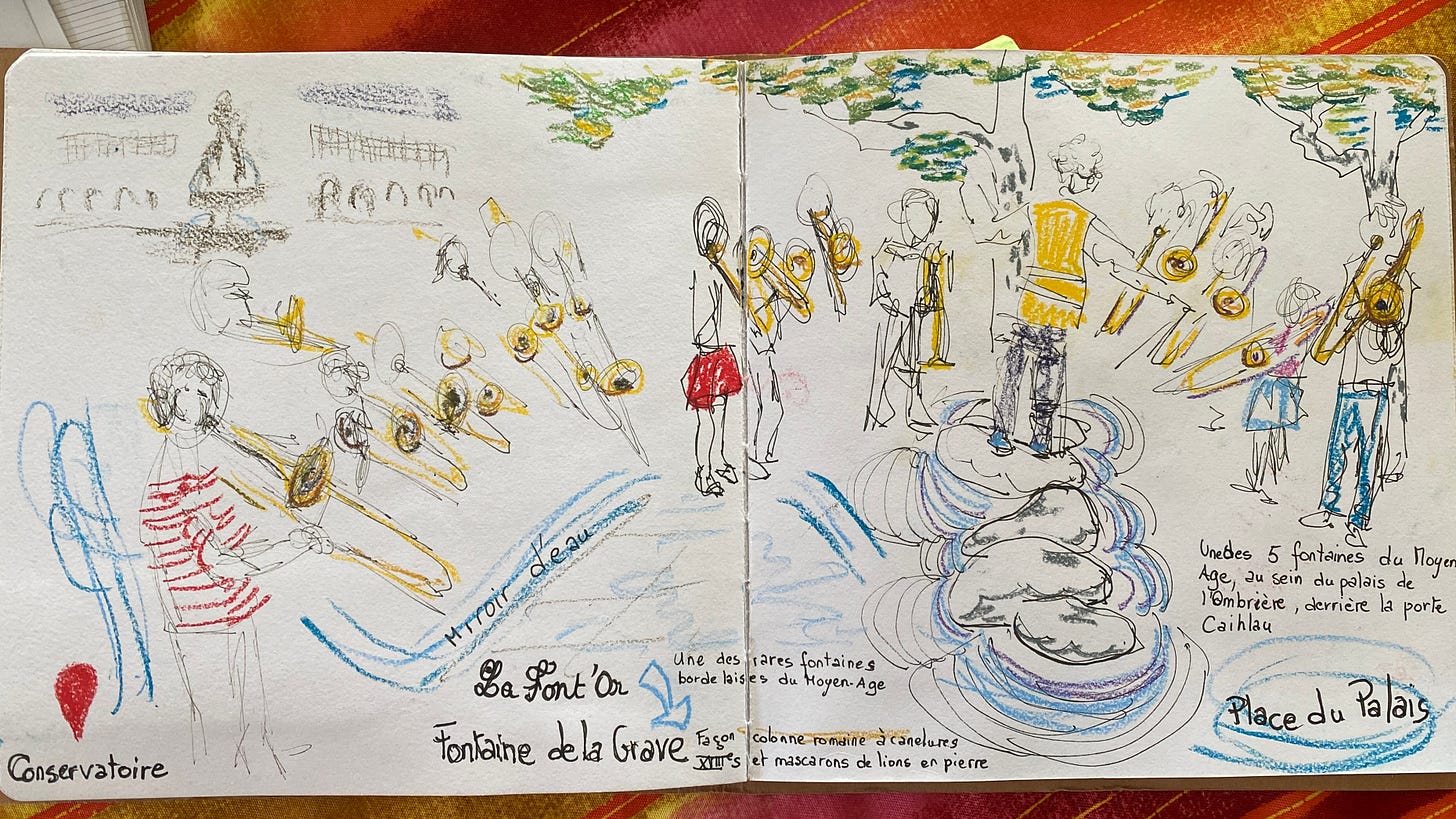 Miroir d'eau
La Font'Or
Fontaine de la Grave
Conservatoire
Une des rares fontaines
bordelaises du Moyen-Age
Façon colonne romaine à canelures
XVIIIes et mascarons de lions en pierre
Une des 5 fontaines du Moyen
Age, au sein du palais de
l'Ombrière, derrière la porte
Caihlau
Place du Palais